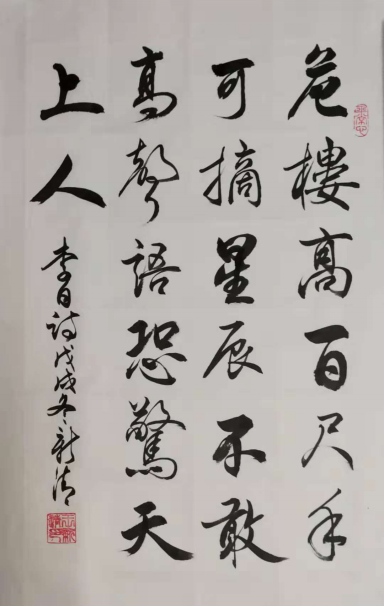 危樓高百尺手
可摘星辰不敢
高聲語恐驚天
上人
李白詩戊戌冬新清